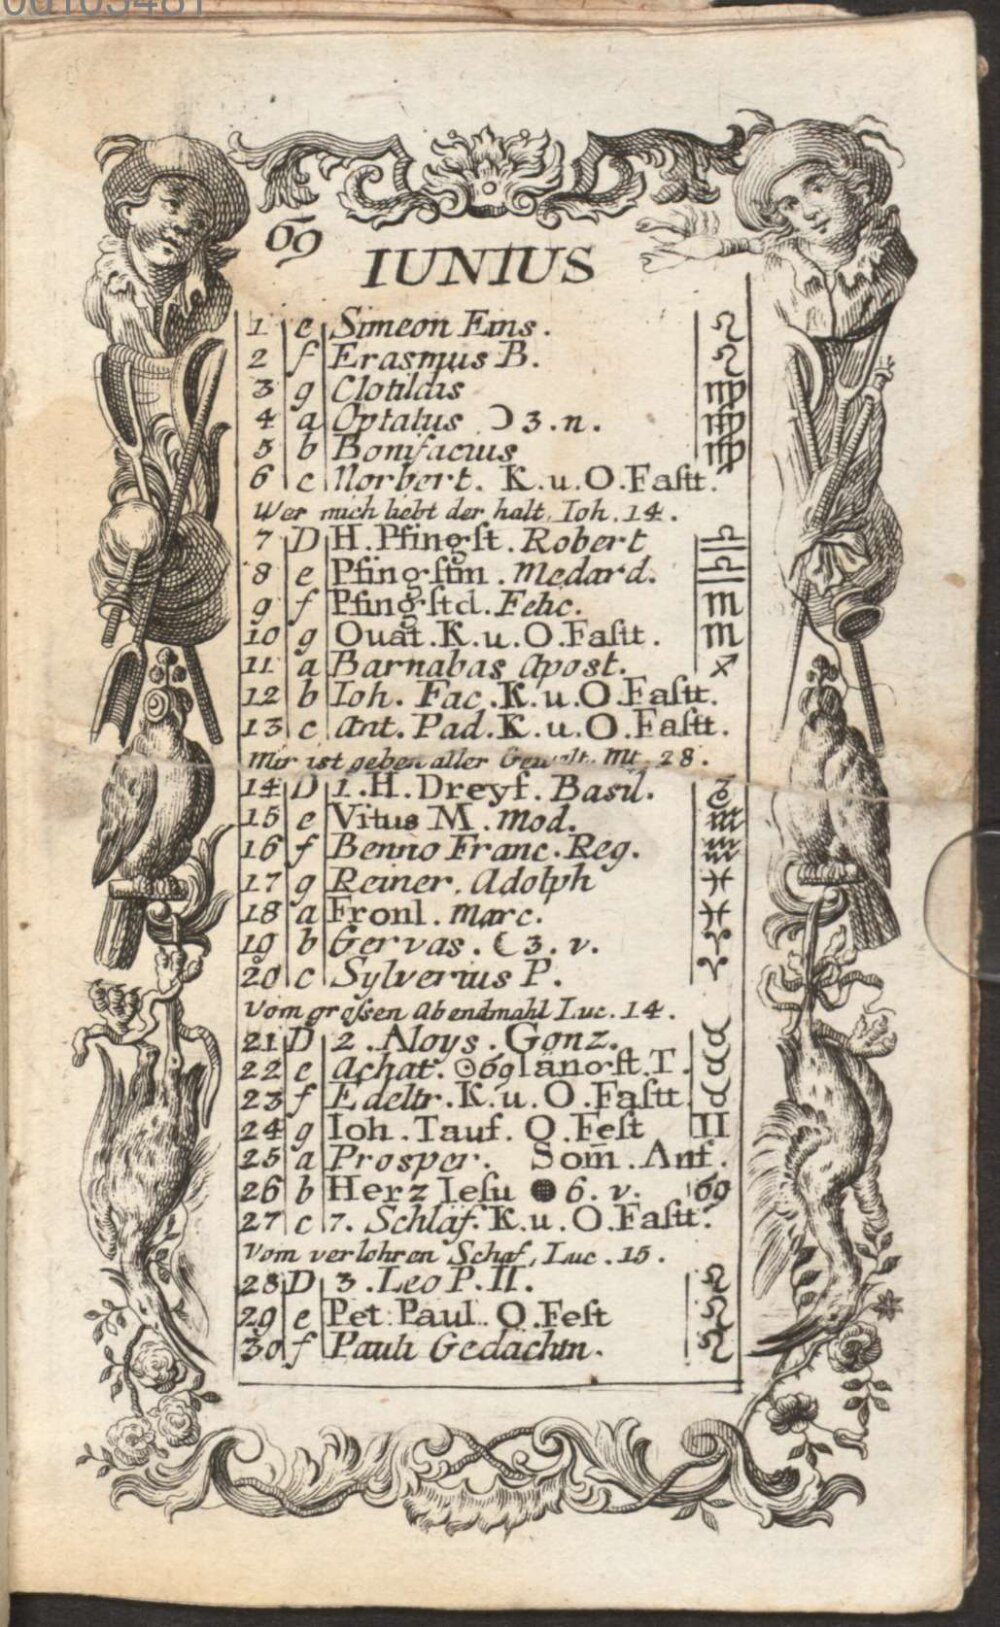 ♋ IUNIUS
1 e Simeon Eins. ♌
2 f Erasmus B. ♌
3 g Clotildis ♍
4 a Optatus ☽ 3.n. ♍
5 b Bonifacius ♍
6 c Norbert. K.u.O.Faſtt.
Wer mich liebt der halt, Ioh. 14.
7 D H. Pfingſt. Robert ♎
8 e Pfingſtm. Medard. ♎
9 f Pfingſtd. Felic. ♏
10 g Quat. K.u.O.Faſtt. ♏
11 a Barnabas Apost. ♐
12 b Ioh. Fac. K.u.O.Faſtt.
13 c Ant. Pad. K.u.O.Faſtt.
Mir ist geben aller Gewalt. Mt. 28.
14 D 1. H. Dreyf. Basil. ♑
15 e Vitus M. Mod. ♒
16 f Benno Franc. Reg. ♒
17 g Reiner. Adolph ♓
18 a Fronl. Marc. ♓
19 b Gervas. ☾ 3. v. ♈
20 c Sylverius P. ♈
Vom groſsen Abendmahl Luc. 14.
21 D 2. Aloys. Gonz. ♉
22 e Achat. ☉ ♋ längſt. T. ♉
23 f Edeltr. K.u.O.Faſtt. ♉
24 g Ioh. Tauf. O. Feſt ♊
25 a Prosper. Som̄. Anf.
26 b Herz Ieſu ● 6. v. ♋
27 c 7. Schläf. K.u.O.Faſtt.
Vom verlohren Schaf, Luc. 15.
28 D 3. Leo P. II. ♌
29 e Pet. Paul. O. Feſt ♌
30 f Pauli Gedächtn. ♌